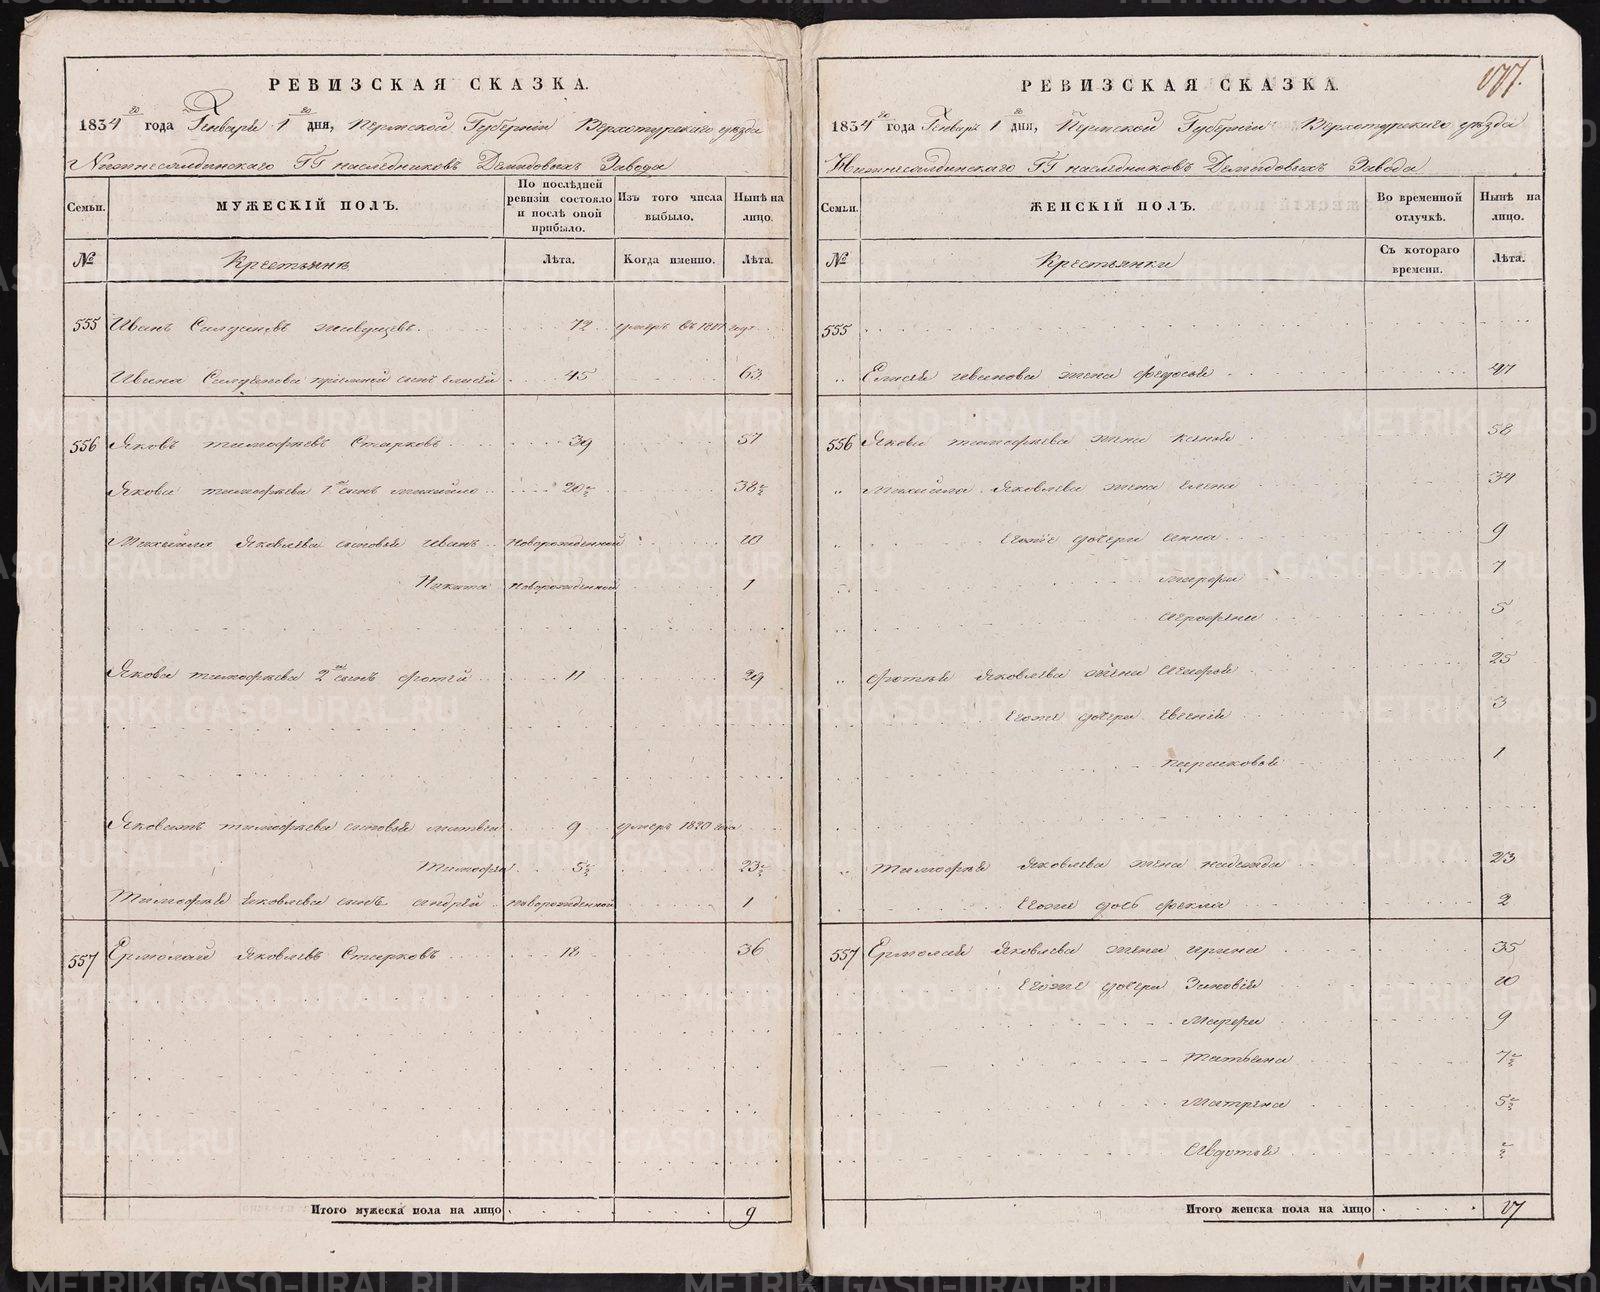 РЕВИЗСКАЯ СКАЗКА.
1834го года Генваря 1го дня, Пермской Губернии Верхотурскаго уезда
Нижнесалдинскаго ГГ наследниковъ Демидовыхъ Завода
Семьи.
МУЖЕСКІЙ ПОЛЪ.
По послѣдней ревизіи состояло и послѣ оной прибыло.
Изъ того числа выбыло.
Нынѣ на лицо.
№ Крестьяне Лѣта. Когда именно. Лѣта.
555 Иванъ 72 умеръ въ 18 году
Ивана приемной сынъ Елисей 45 63
556 Яковъ тимофеевъ Старковъ 39 57
Якова тимофеева 1й сынъ михайло 20½ 38½
Михайла Яковлева сыновья Иванъ новорожденной 10
Никита новорожденной 1
Якова тимофеева 2й сынъ фотей 11 29
Якова тимофеева сыновья матвей 9 умеръ 1820 года
Тимофей 5½ 23½
Тимофея Яковлева сынъ андрей новорожденной 1
557 Ермолай Яковлевъ Старковъ 18 36
Итого мужеска пола на лицо 9
177.
РЕВИЗСКАЯ СКАЗКА.
1834го года Генваря 1го дня, Пермской Губернии Верхотурскаго уезда
Нижнесалдинскаго ГГ наследниковъ Демидовыхъ Завода
Семьи.
ЖЕНСКІЙ ПОЛЪ.
Во временной отлучкѣ.
Нынѣ на лицо.
№ Крестьянки Съ котораго времени. Лѣта.
555
Елисея иванова жена федосья 47
556 Якова тимофеева жена 58
михайла Яковлева жена Елена 34
Егоже дочери анна 9
марфа 7
аграфена 5
фотея Яковлева жена агафья 25
Егоже дочери Евгения 3
парасковья 1
Тимофея Яковлева жена надежда 23
Егоже дочь фекла 2
557 Ермолая Яковлева жена ирина 35
Егоже дочери Зиновия 10
Марфа 9
Татьяна 7½
Матрена 5½
Авдотья ½
Итого женска пола на лицо 17
METRIKI.GASO-URAL.RU